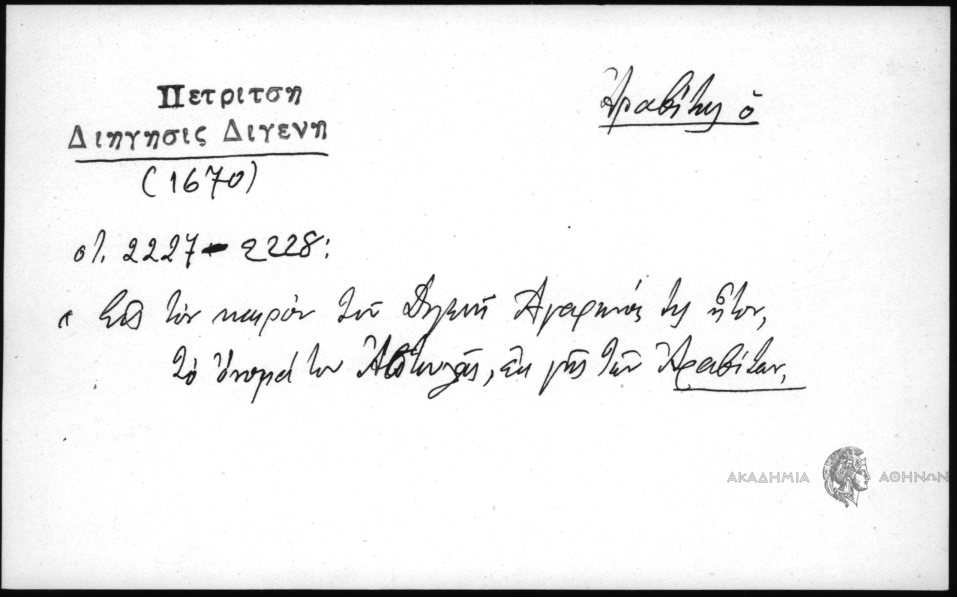 Πετρίτση
Διήγησις Διγενή
(1670)
Ἀραβίτης ὁ
στ. 2227-2228:
Εἰς τὸν καιρὸν τοῦ Διγενῆ Ἀγαρηνός τις ἦτον,
τὸ ὄνομά του, ἐκ γῆς τῶν Ἀραβίτων,
ΑΚΑΔΗΜΙΑ ΑΘΗΝΩΝ